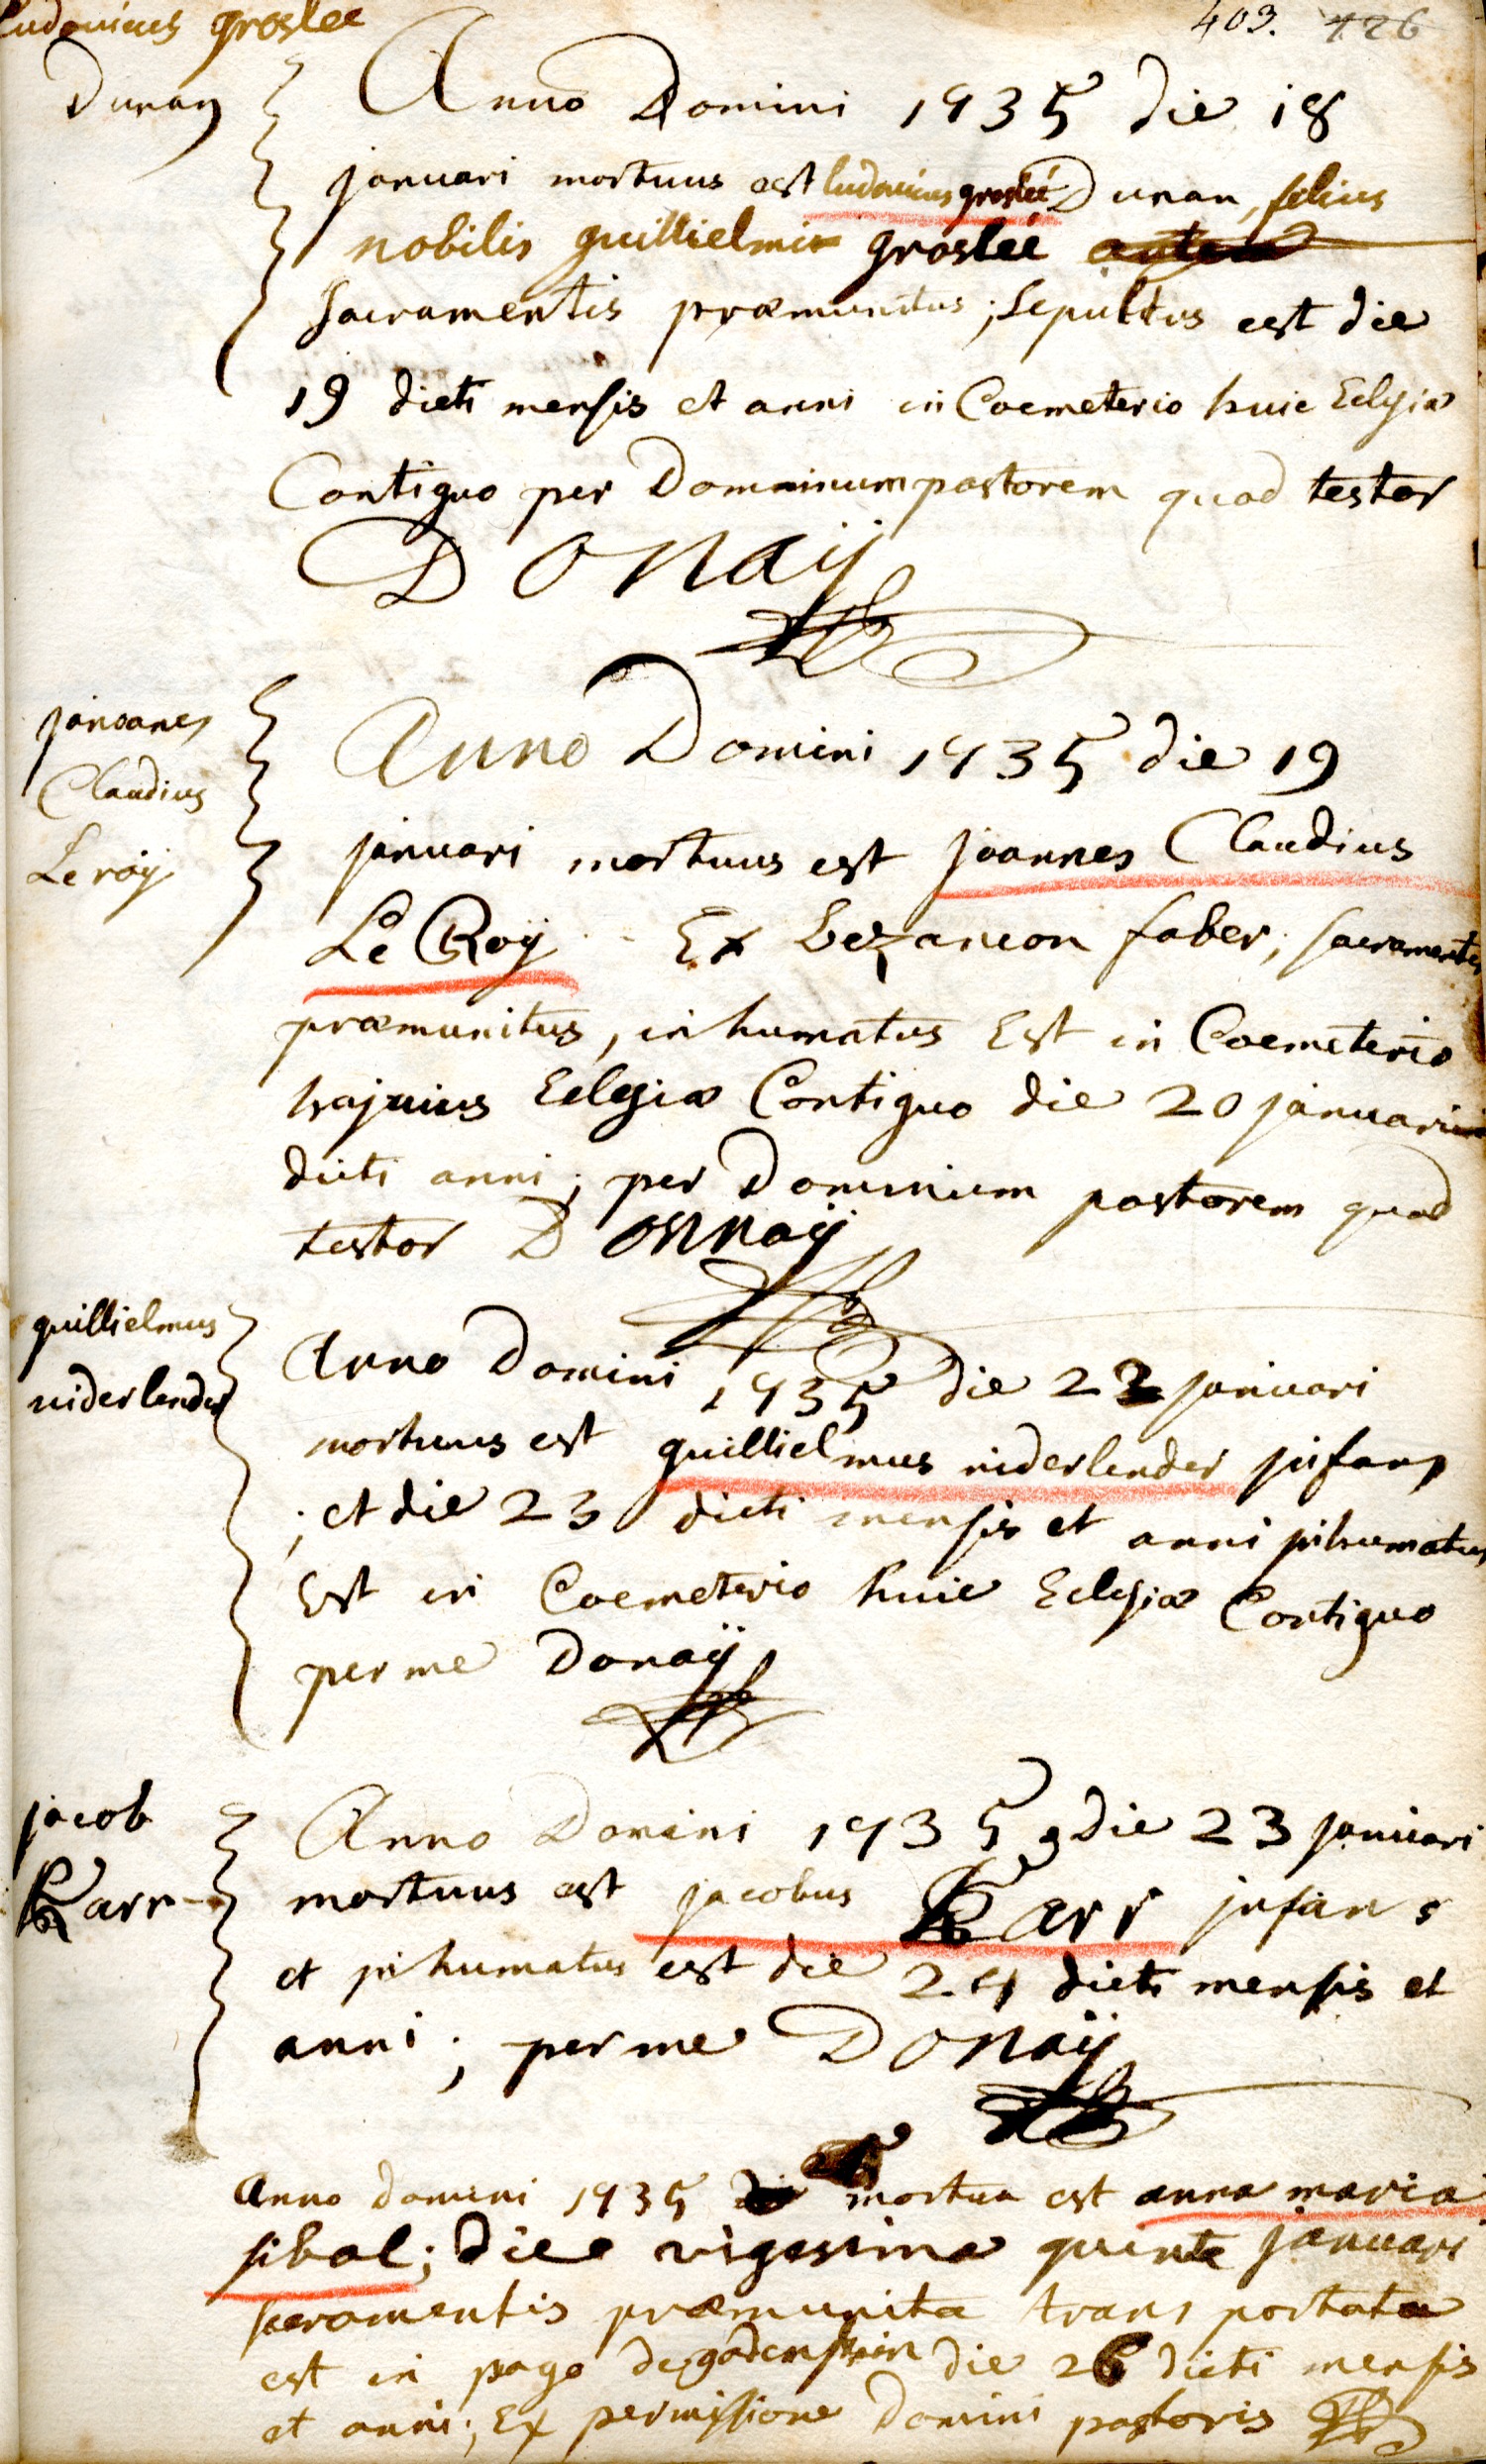 Ludovicus groslee
403. 426
Dunan
Anno Domini 1735 die 18
januari mortuus est ludovicus groslei Dunan, filius
nobilis guillielmi groslei
Sacramentis præmunitus; Sepultus est die
19 dicti mensis et anni in Coemeterio huic Eclesiæ
Contiguo per Domminum pastorem quod testor
Donaÿ
joanes
Claudius
Leroÿ
Anno Domini 1735 die 19
januari mortuus est joannes Claudius
Le Roÿ Ex bezancon faber, sacramentis
præmunitus, inhumatus Est in Coemeterio
hujuius Eclesiæ Contiguo die 20 januari
dicti anni; per Dominum pastorem quod
testor Donnaÿ
guillielmus
niderlender
Anno Domini 1735 die 22 januari
mortuus est guillielmus niderlender jnfans
; et die 23 dicti mensis et anni jnhumatus
Est in Coemeterio huic Eclesiæ Contiguo
per me Donaÿ
jacob
Karr
Anno Domini 1735 die 23 januari
mortuus est jacobus Karr jnfans
et jnhumatus est die 24 dicti mensis et
anni; per me Donaÿ
Anno domini 1735 mortua est anna maria
sibal; die vigesima quinta januari
sacramentis præmunita transportata
est in pago de die 26 dicti mensis
et anni; Ex permissione Domini pastoris